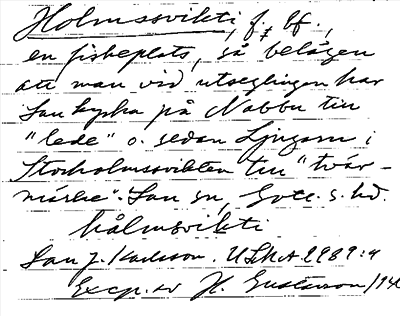 Holmssvikti, f., bf.,
en fiskeplats, så belägen
att man vid utseglingen har
San kyrka på Nabbu till
"lede" o. sedan Ljugarn i
Stocholmssvikten till "tvär-
märke". San sn, Gotl. s. hd.
hålmsvikti
San J. Karlsson. ULMA 2989:4
Excp. av H. Gustavson